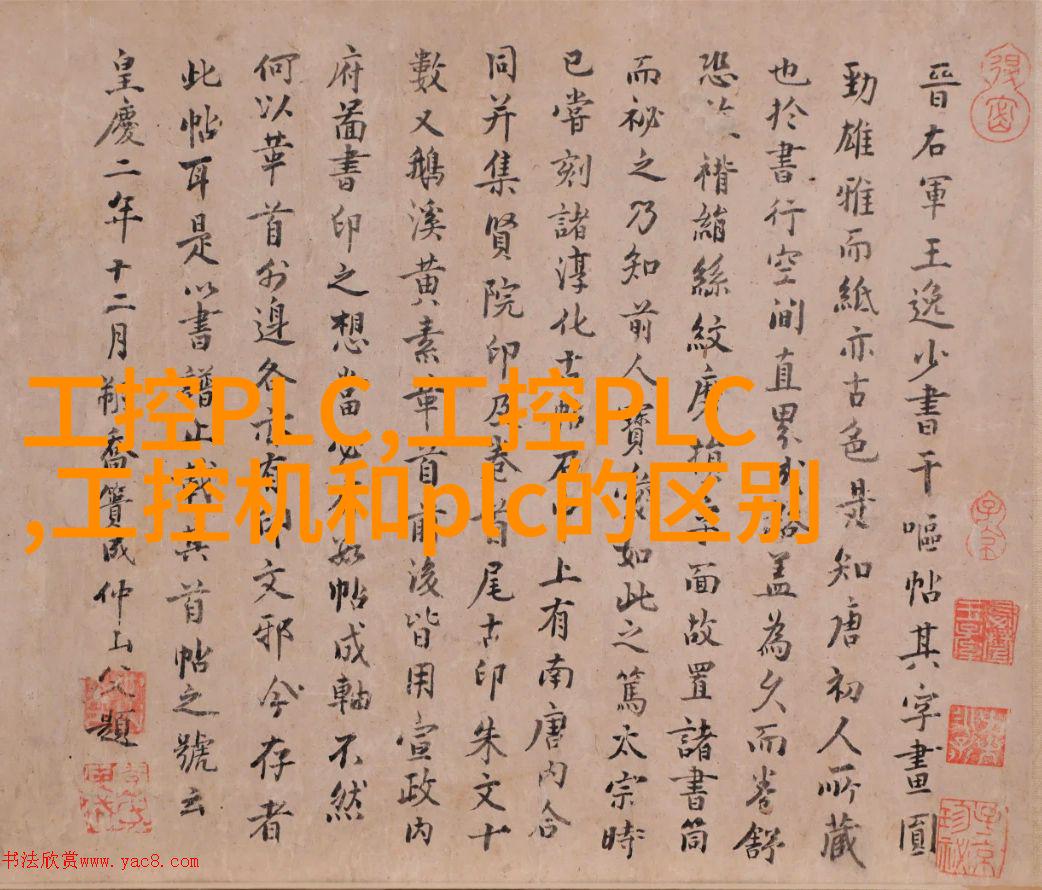 晉右軍王逸少書干嘔帖其字畫圓
勁雄雅而紙亦古色是知唐初人所藏
也於書行空間直界蓋為久而卷舒
恐褙絹絲紋磨損字面故置諸書筒
而祕之乃知前人寶愛如此之篤太宗時
已嘗刻諸淳化古帖石上有南唐內合
同并集賢院印及卷首尾古印朱文十
數又鵝溪黃素首前後皆用宣政內
府圖書印之想當必帖成軸不然
何以華首外邊各有印文邪今存者
此帖耳是以書譜止載其首帖之號云
皇慶二年十二月喬簣成仲山父題
工控PLC,工控PLC
,工控机和plc的区别
书法欣赏www.yac8.com